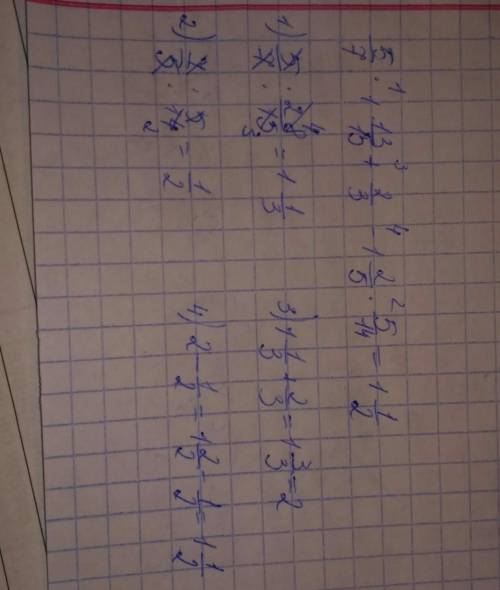 5/7 · 1 13/15 + 2/3 - 1 2/5 · 5/14 = 1 1/2
1) 5/7 · 28/15 = 1 1/3
2) 7/5 · 5/14 = 1/2
3) 1 1/3 + 2/3 = 1 3/3 = 2
4) 2 - 1/2 = 1 2/2 - 1/2 = 1 1/2